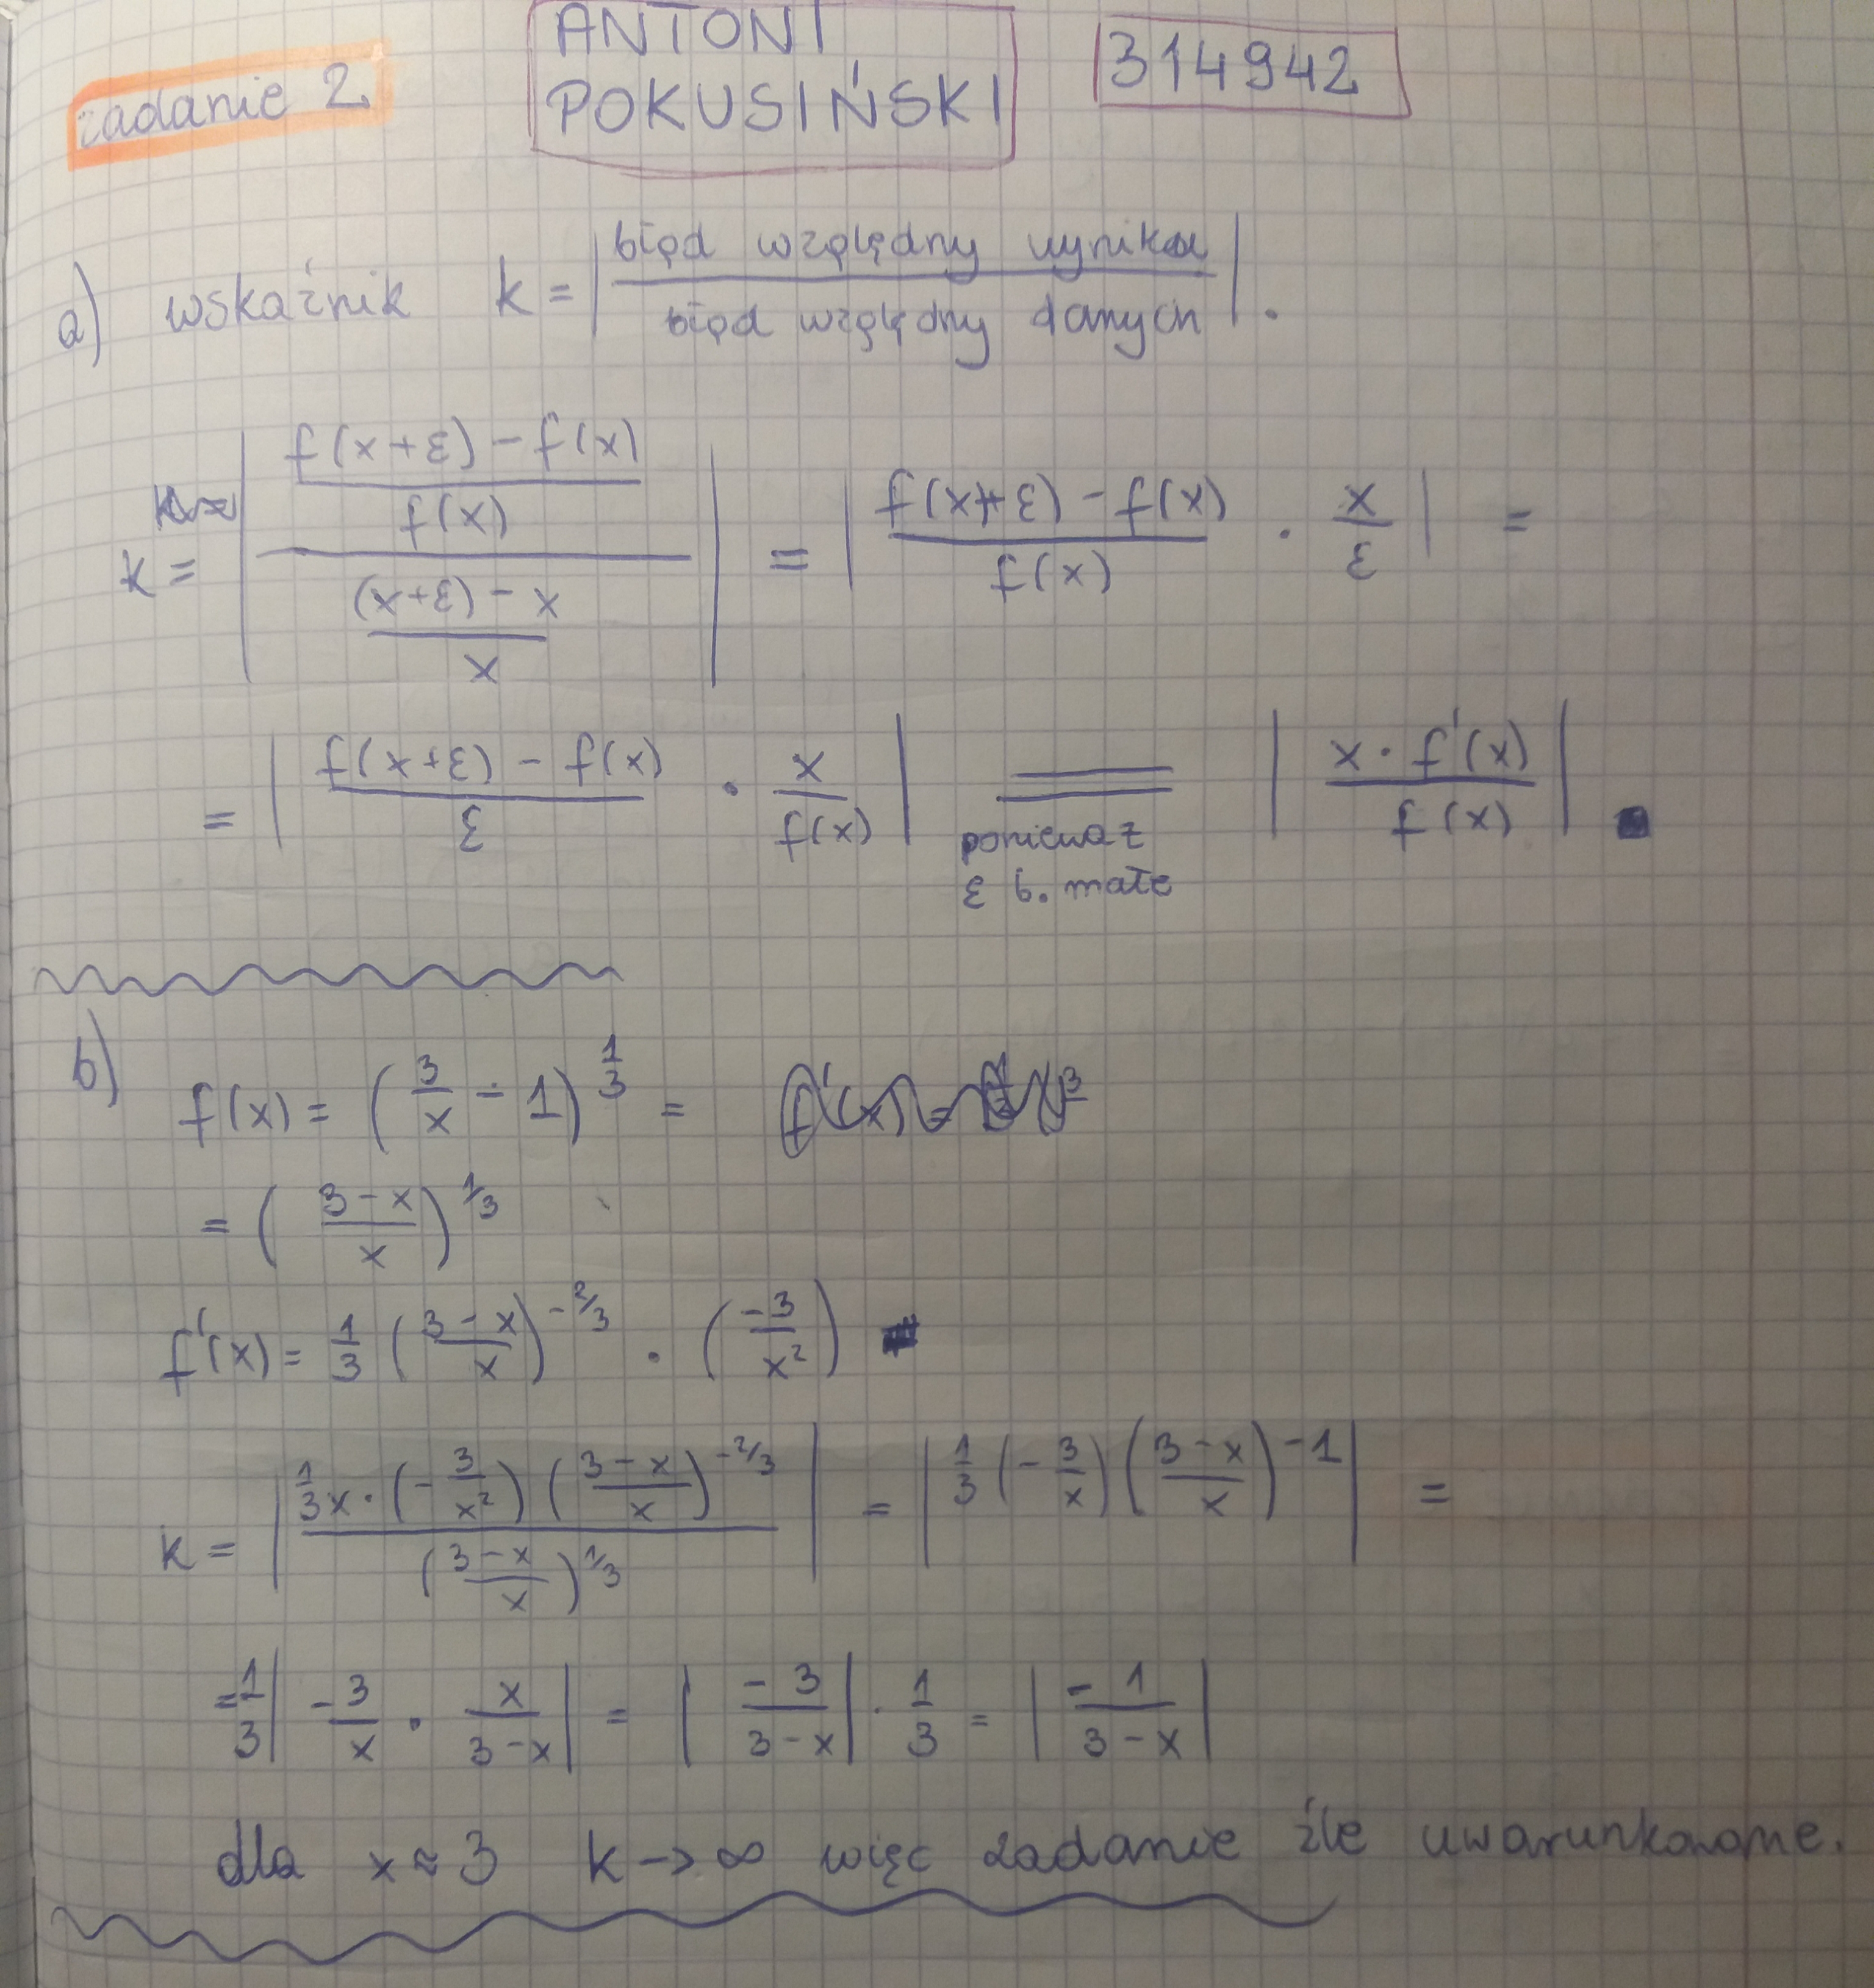 zadanie 2
ANTONI
POKUSIŃSKI
314942
a) wskaźnik k = | błąd względny wyniku / błąd względny danych | .
k = | ((f(x+ε) - f(x)) / f(x)) / (((x+ε) - x) / x) | = | (f(x+ε) - f(x)) / f(x) · x/ε | =
= | (f(x+ε) - f(x)) / ε · x / f(x) | = | x · f'(x) / f(x) |
ponieważ
ε b. małe
b) f(x) = (3/x - 1)^(1/3) =
= ((3-x)/x)^(1/3)
f'(x) = 1/3 ((3-x)/x)^(-2/3) · (-3/x²)
k = | (1/3 x · (-3/x²) ((3-x)/x)^(-2/3)) / ((3-x)/x)^(1/3) | = | 1/3 (-3/x) ((3-x)/x)^(-1) | =
= 1/3 | -3/x · x/(3-x) | = | -3/(3-x) | · 1/3 = | -1/(3-x) |
dla x ≈ 3 k → ∞ więc zadanie źle uwarunkowane.